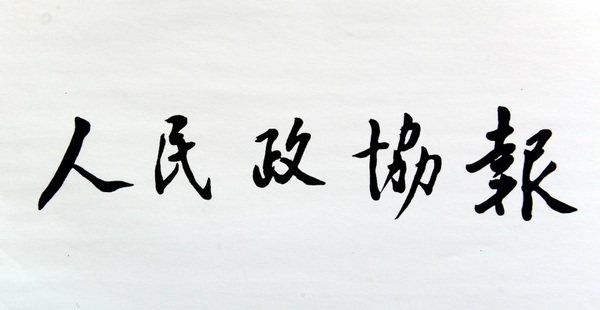 人民政協報